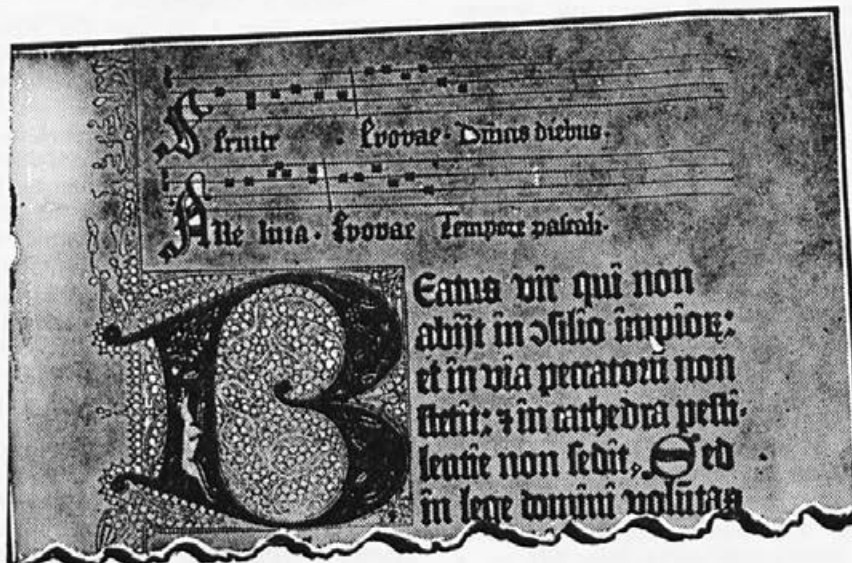 Seruite . Euouae . Dñicis diebus .
Alle luia . Euouae Tempore paschali .
Beatus vir qui non
abijt in ɔsilio impioꝝ :
et in via peccatorū non
stetit : ⁊ in cathedra pesti-
lentie non sedit , Sed
in lege domini volūtas